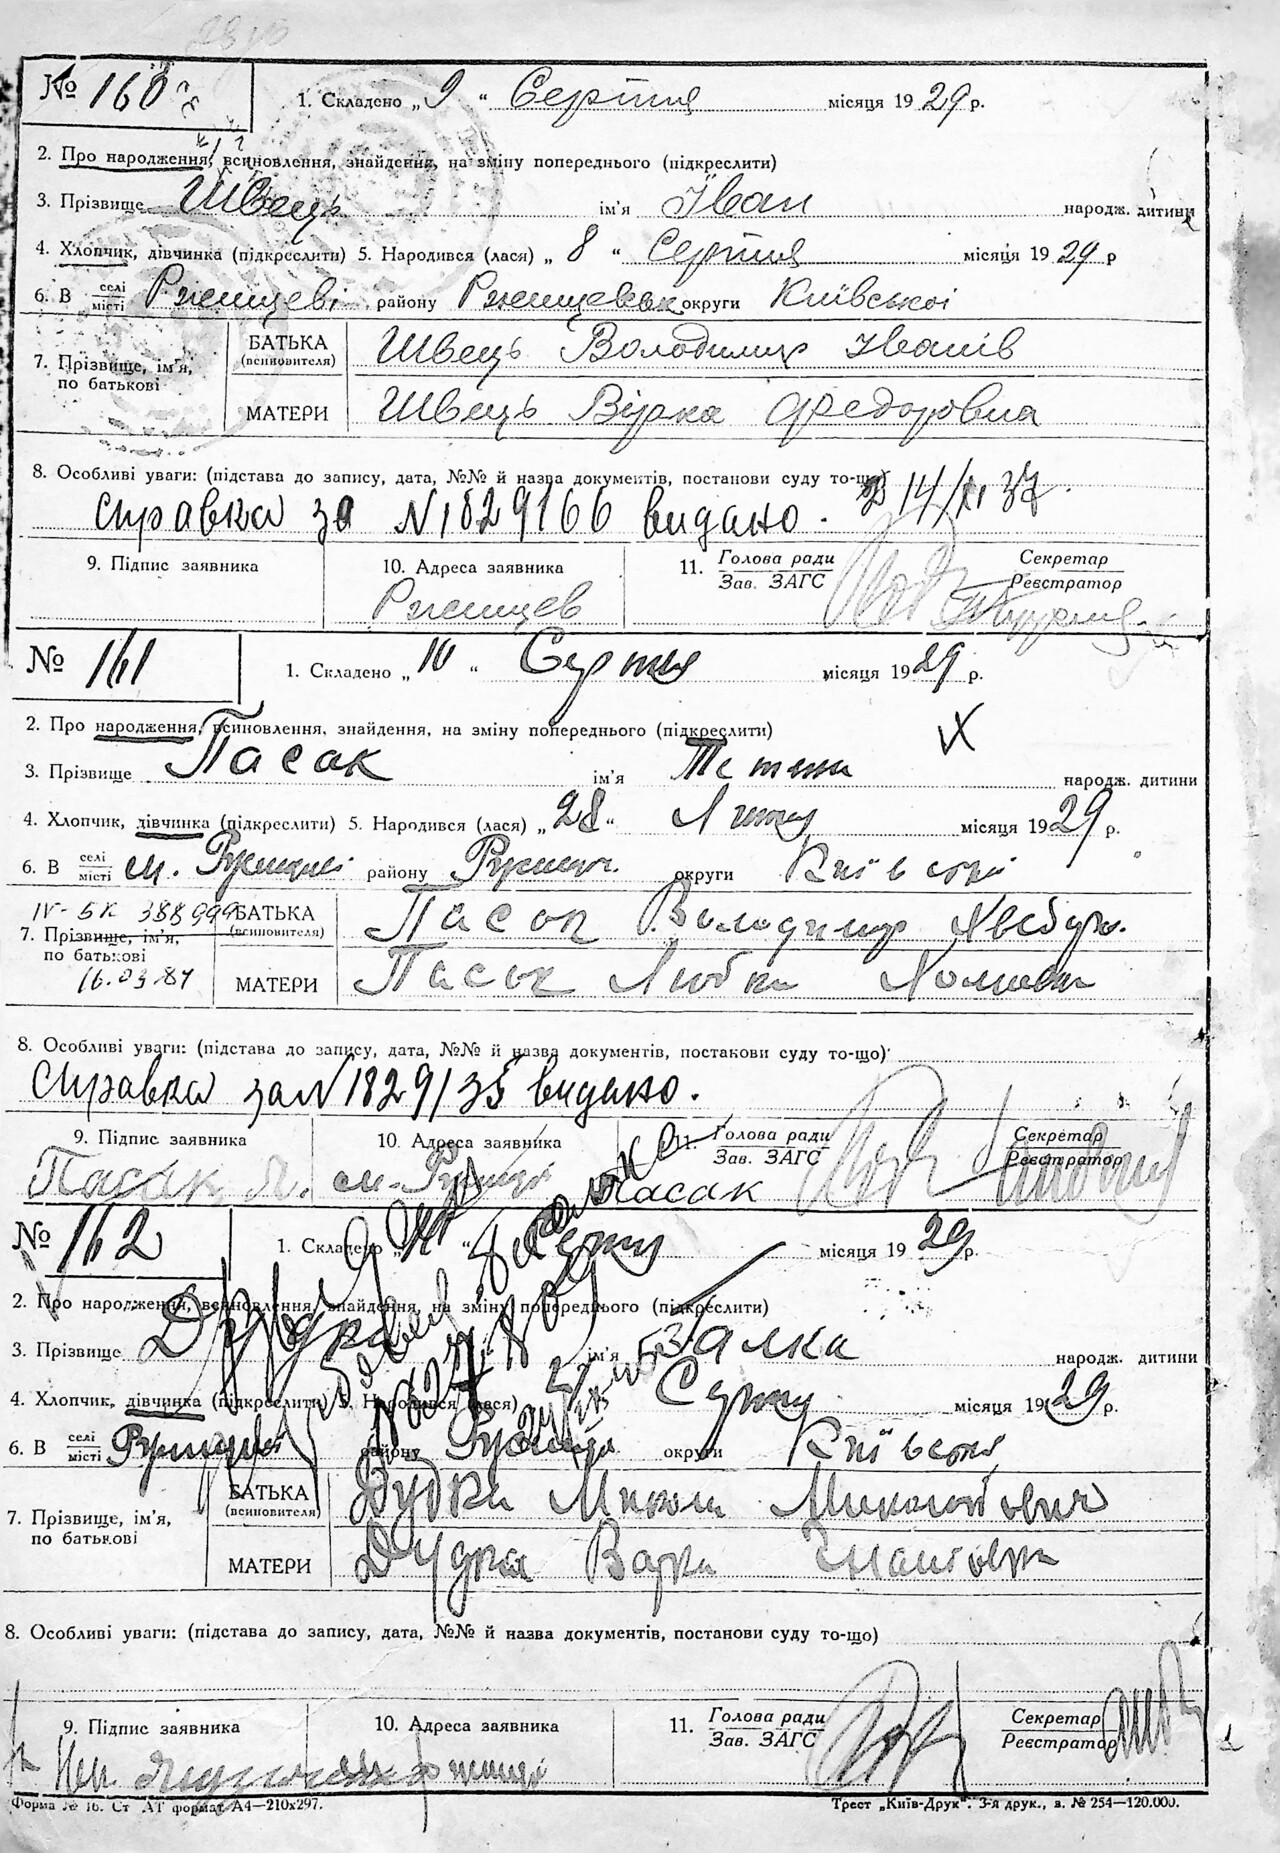 № 160 1. Складено „ 9 “ Серпня місяця 19 29 р.
2. Про народження, всиновлення, знайдення, на зміну попереднього (підкреслити)
3. Прізвище Швець ім'я Іван народж. дитини
4. Хлопчик, дівчинка (підкреслити) 5. Народився (лася) „ 8 “ Серпня місяця 19 29 р
6. В селі місті Ржищеві району Ржищевськ округи Київської
7. Прізвище, ім'я, по батькові
БАТЬКА (всиновителя) Швець Володимир Іванів
МАТЕРИ Швець Вірка Федоровна
8. Особливі уваги: (підстава до запису, дата, №№ й назва документів, постанови суду то-що) 14/ 37.
Справка за N1829166 видано.
9. Підпис заявника 10. Адреса заявника 11. Голова ради Секретар
Зав. ЗАГС Реєстратор
Ржищев
№ 161 1. Складено „ 10 “ Серпня місяця 19 29 р.
2. Про народження, всиновлення, знайдення, на зміну попереднього (підкреслити)
3. Прізвище Пасак ім'я Тетяна народж. дитини
4. Хлопчик, дівчинка (підкреслити) 5. Народився (лася) „ 28 “ Липня місяця 19 29 р.
6. В селі місті м. Ржищеві району Ржищ. округи Київської
IV-БК 388999
7. Прізвище, ім'я, по батькові
16.03.84
БАТЬКА (всиновителя) Пасак Володимир
МАТЕРИ Пасак Любка
8. Особливі уваги: (підстава до запису, дата, №№ й назва документів, постакови суду то-що)
Справка за N 1829135 видано.
9. Підпис заявника 10. Адреса заявника 11. Голова ради Секретар
Зав. ЗАГС Реєстратор
Пасак м. Ржищів Пасак
№ 162 1. Складено „ “ Серпня місяця 19 29 р.
2. Про народження, всиновлення, знайдення, на зміну попереднього (підкреслити)
3. Прізвище Дудка ім'я Галка народж. дитини
4. Хлопчик, дівчинка (підкреслити) 5. Народився (лася) Серпня місяця 19 29 р.
6. В селі місті Ржищеві району Ржищів округи Київська
7. Прізвище, ім'я, по батькові
БАТЬКА (всиновителя) Дудка Микола Миколаєвич
МАТЕРИ Дудка Варка Гнатовна
8. Особливі уваги: (підстава до запису, дата, №№ й назва документів, постанови суду то-що)
9. Підпис заявника 10. Адреса заявника 11. Голова ради Секретар
Зав. ЗАГС Реєстратор
Форма № 16. Ст АТ формат А4—210х297. Трест „Київ-Друк“. 3-я друк., з. № 254—120.000.